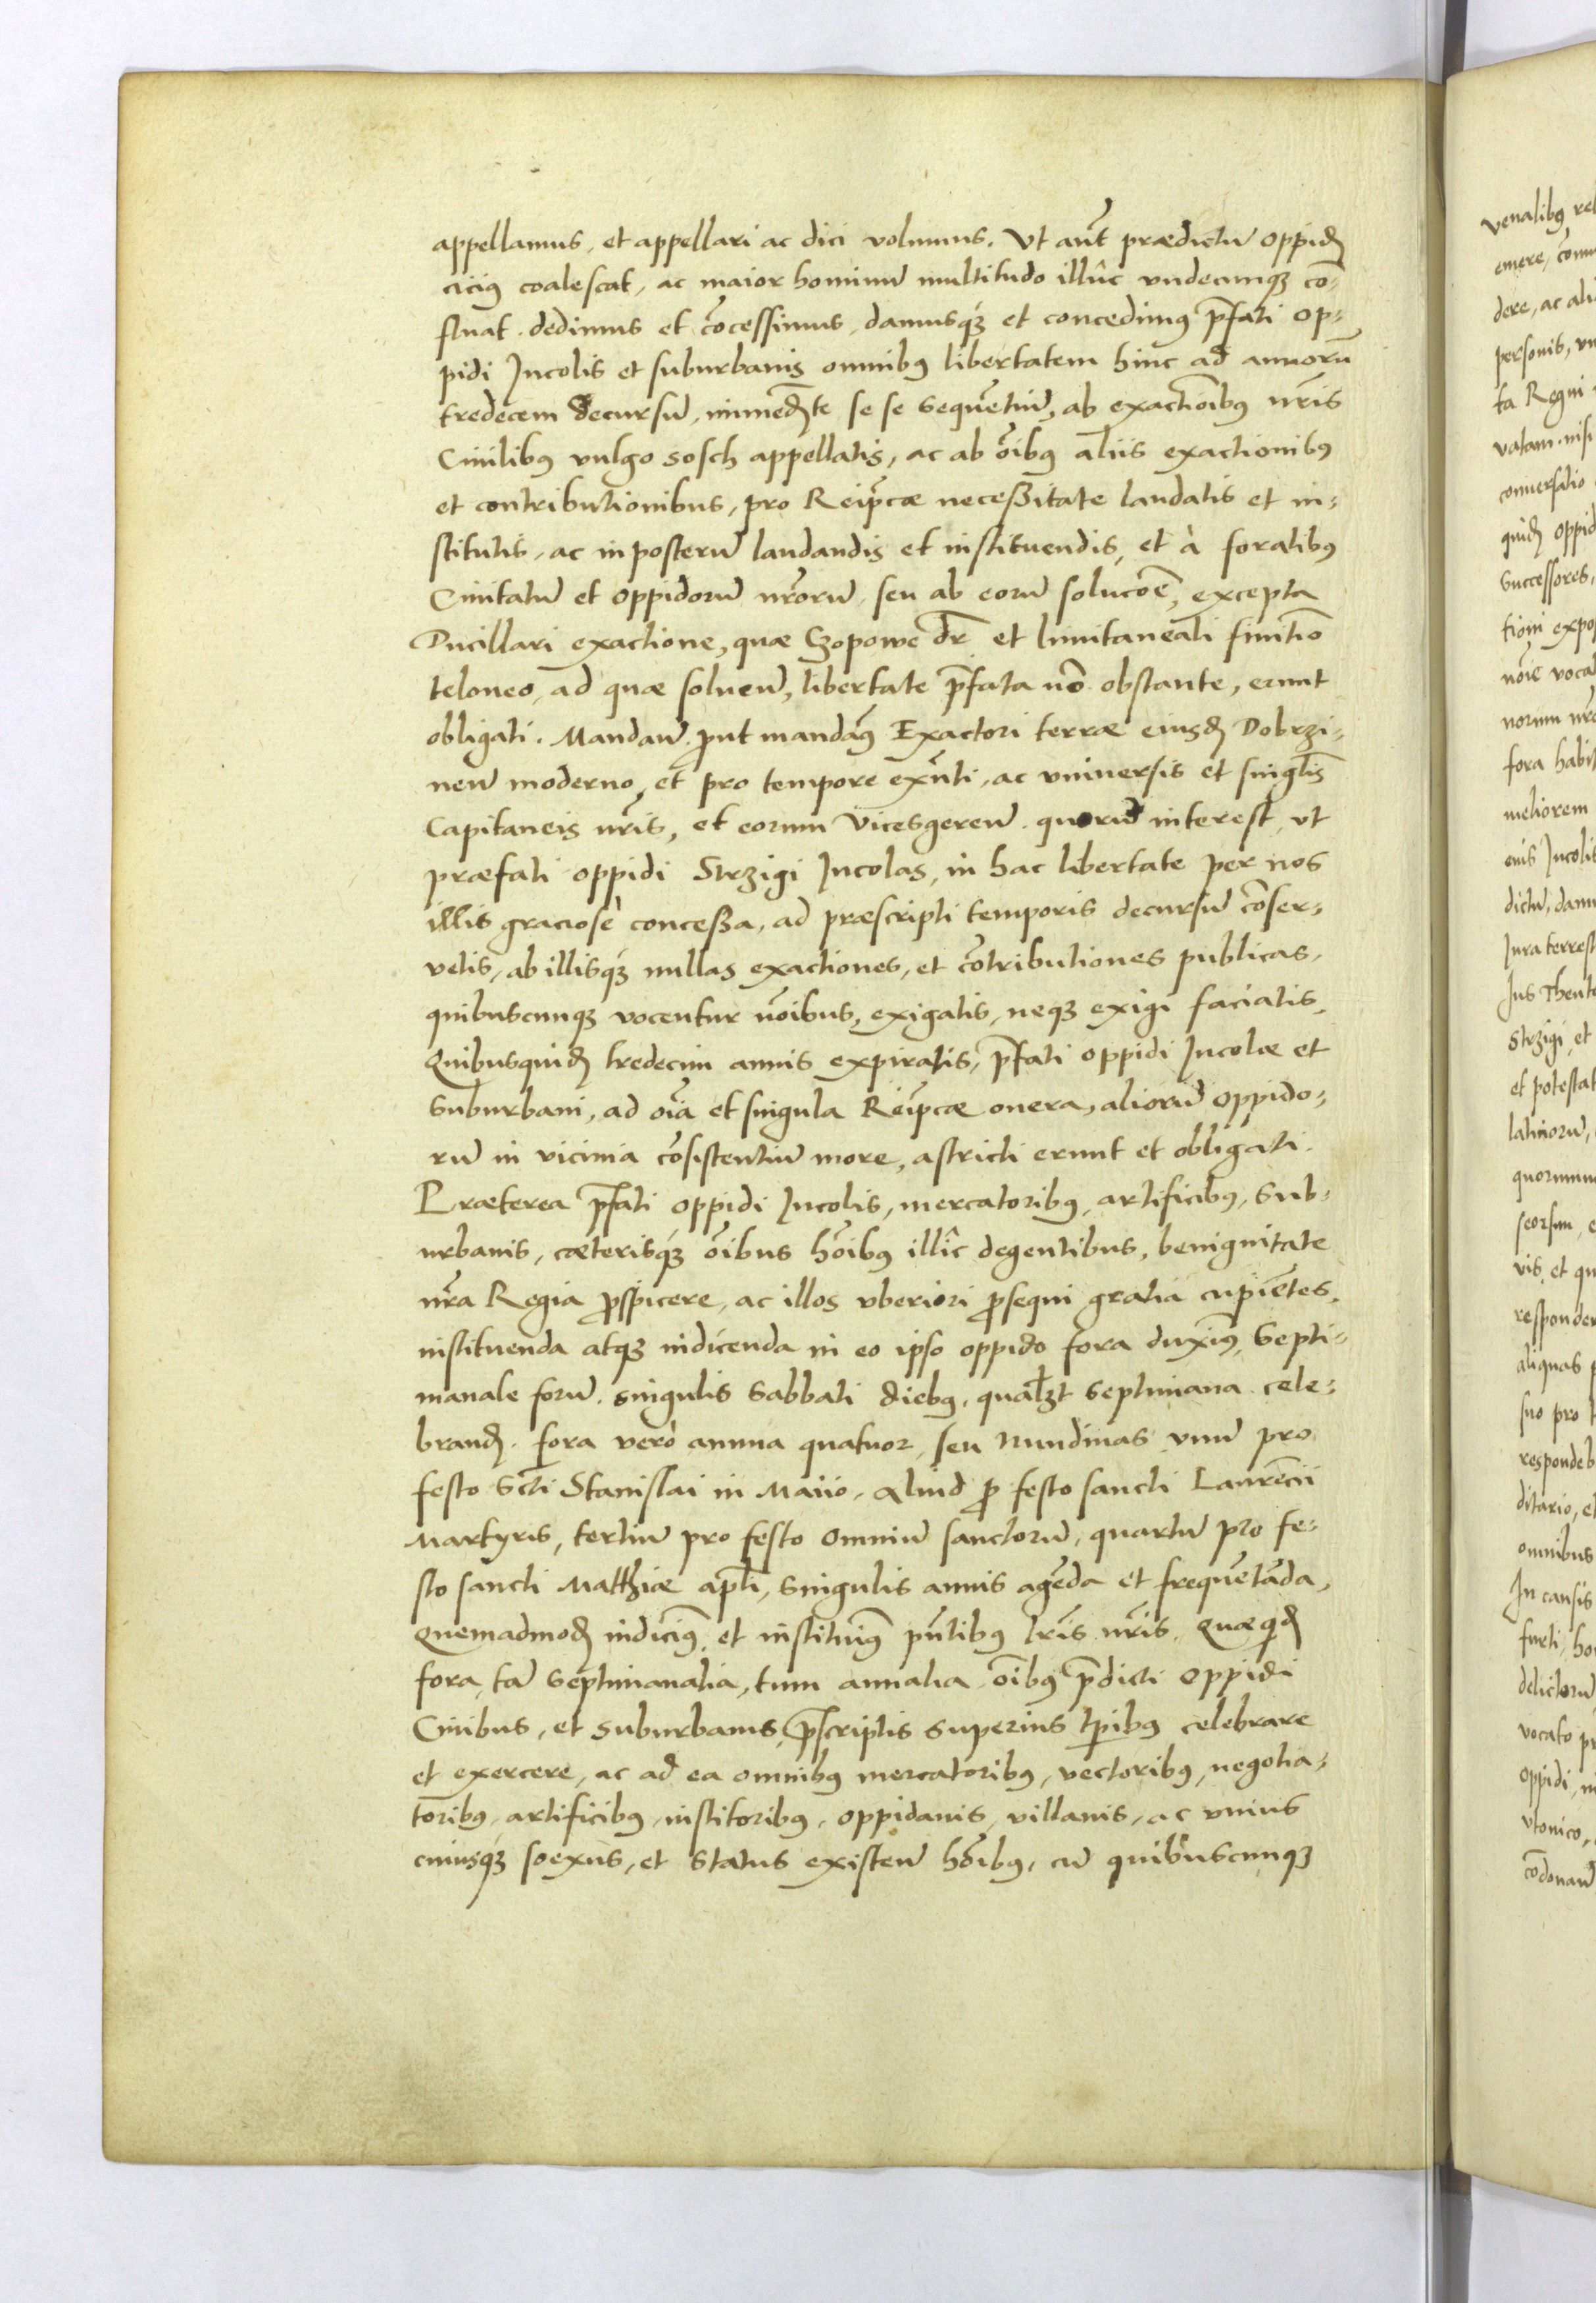 appellamus, et appellari ac dici volumus. Vt aūt prædictū oppid̄
cicius coalescat, ac maior hominū multitudo illūc vndecunqꝫ cō=
fluat. dedimus et cōcessimus, damusqꝫ et concedimꝰ p̄fati op=
pidi Incolis et suburbanis omnibꝰ libertatem hinc ad annorū
tredecem decursū, immed̄te se se sequētiū, ab exactiōibꝰ nr̄is
Ciuilibꝰ vulgo sosch appellatis, ac ab oībꝰ aliis exactionibꝰ
et contributionibus, pro Reip̄cæ necessitate laudatis et in=
stitutis, ac in posterū laudandis et instituendis, et à foralibꝰ
Ciuitatū et oppidorū nr̄orū, seu ab eorū solucōe, excepta
Ducillari exactione, quæ Czopowe dr̄ et limitaneali finitio
teloneo, ad quæ soluen̄, libertate p̄fata nō obstante, erunt
obligati. Mandan̄ prout mandaꝰ Exactori terræ eiusd̄ Dobrzi=
nen̄ moderno, et pro tempore exn̄ti, ac vniuersis et singl̄is
Capitaneis nr̄is, et eorum Vicesgeren̄. quorū interest, vt
præfati oppidi Strzigi Incolas, in hac libertate per nos
illis graciosè concessa, ad præscripti temporis decursū cōser=
vetis, ab illisqꝫ nullas exactiones, et cōtributiones publicas,
quibuscunqꝫ vocentur nōibus, exigatis, neqꝫ exigi faciatis.
Quibusquid̄ tredecim annis expiratis, p̄fati oppidi Incolæ et
Suburbani, ad oīa et singula Reip̄cæ onera, aliorū oppido=
rū in vicinia cōsistentiū more, astricti erunt et obligati.
Præterea p̄fati oppidi Incolis, mercatoribꝰ, artificibꝰ, sub=
urbanis, cæterisqꝫ oībus hoībꝰ illīc degentibus, benignitate
nr̄a Regia ꝓspicere, ac illos vberiori ꝓsequi gratia cupiētes,
instituenda atqꝫ indicenda in eo ipso oppido fora duximꝰ, Septi=
manale forū. singulis Sabbati diebꝰ, qualꝫt septimana cele=
brand̄. fora verò annua quatuor, seu nundinas vnū pro
festo Scti Stanislai in Maiio, aliud ꝓ festo sancti Laurēcii
Martyris, tertiū pro festo omniū sanctorū, quartū pro fe=
sto sancti Matthiæ apl̄i, singulis annis agēda et frequētāda,
Quemadmod̄ indicimꝰ et instituimꝰ pn̄tibꝰ lr̄is nr̄is. Quæqd̄
fora, tā septimanalia, tum annalia oībꝰ p̄dicti oppidi
Ciuibus, et suburbanis, p̄scriptis superius tp̄ibꝰ celebrare
et exercere, ac ad ea omnibꝰ mercatoribꝰ, vectoribꝰ, negotia=
toribꝰ, artificibꝰ, institoribꝰ, oppidanis, villanis, ac vnius
cuiusqꝫ soexus, et status existen̄ hoībꝰ, cū quibuscunqꝫ
venalibꝰ
emere,
dere, ac
personis,
ta Regni
vatam. nisi
conuersatio
quid̄
Successores,
norum
fora
meliorem
eius
dictū,
Strzigi, et
latinorū,
seorsim,
vis, et
aliquas
suo pro
ditario, et
omnibus
In causis
furti,
delictorū
vocato
oppidi,
vtonico,
cōdonan̄